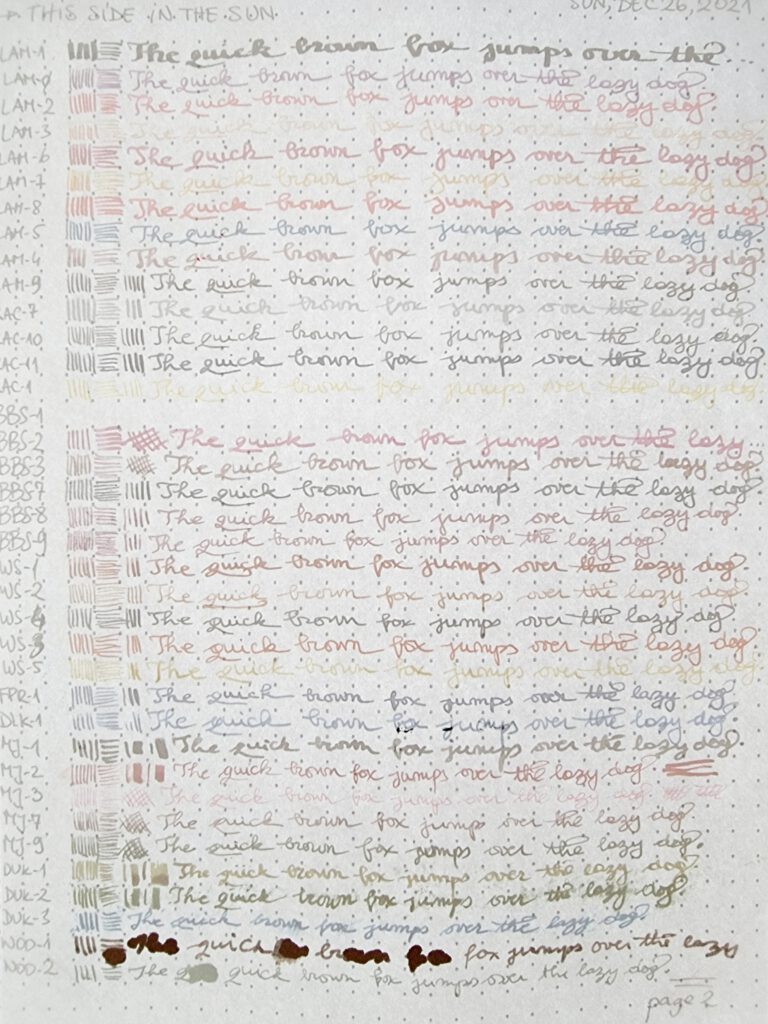 THIS SIDE IN THE SUN. SUN, DEC 26, 2021
LAM-1 The quick brown fox jumps over the
LAM-0 The quick brown fox jumps over the lazy dog.
LAM-2 The quick brown fox jumps over the lazy dog.
LAM-3 The quick brown fox jumps over the lazy dog.
LAM-6 The quick brown fox jumps over the lazy dog
LAM-7 The quick brown fox jumps over the lazy dog
LAM-8 The quick brown fox jumps over the lazy dog
LAM-5 The quick brown fox jumps over the lazy dog.
LAM-4 The quick brown fox jumps over the lazy dog.
AM-9 The quick brown fox jumps over the lazy dog.
AC-7 The quick brown fox jumps over the lazy dog.
AC-10 The quick brown fox jumps over the lazy dog.
AC-11 The quick brown fox jumps over the lazy dog.
AC-1 The quick brown fox jumps over the lazy dog.
BBS-1
BBS-2 The quick brown fox jumps over the lazy
BBS-3 The quick brown fox jumps over the lazy dog.
BBS-7 The quick brown fox jumps over the lazy dog.
BBS-8 The quick brown fox jumps over the lazy dog.
BBS-9 The quick brown fox jumps over the lazy dog.
WŚ-1 The quick brown fox jumps over the lazy dog.
WŚ-2 The quick brown fox jumps over the lazy dog.
WŚ-4 The quick brown fox jumps over the lazy dog.
WŚ-3 The quick brown fox jumps over the lazy dog.
WŚ-5 The quick brown fox jumps over the lazy dog.
FPR-1 The quick brown fox jumps over the lazy dog.
DLK-1 The quick brown fox jumps over the lazy dog.
MJ-1 The quick brown fox jumps over the lazy dog.
MJ-2 The quick brown fox jumps over the lazy dog.
MJ-3 The quick brown fox jumps over the lazy dog.
MJ-7 The quick brown fox jumps over the lazy dog.
MJ-9 The quick brown fox jumps over the lazy dog.
DUK-1 The quick brown fox jumps over the lazy dog.
DUK-2 The quick brown fox jumps over the lazy dog.
DUK-3 The quick brown fox jumps over the lazy dog.
NOD-1 The quick brown fox fox jumps over the lazy
NOD-2 The quick brown fox jumps over the lazy dog.
page 2